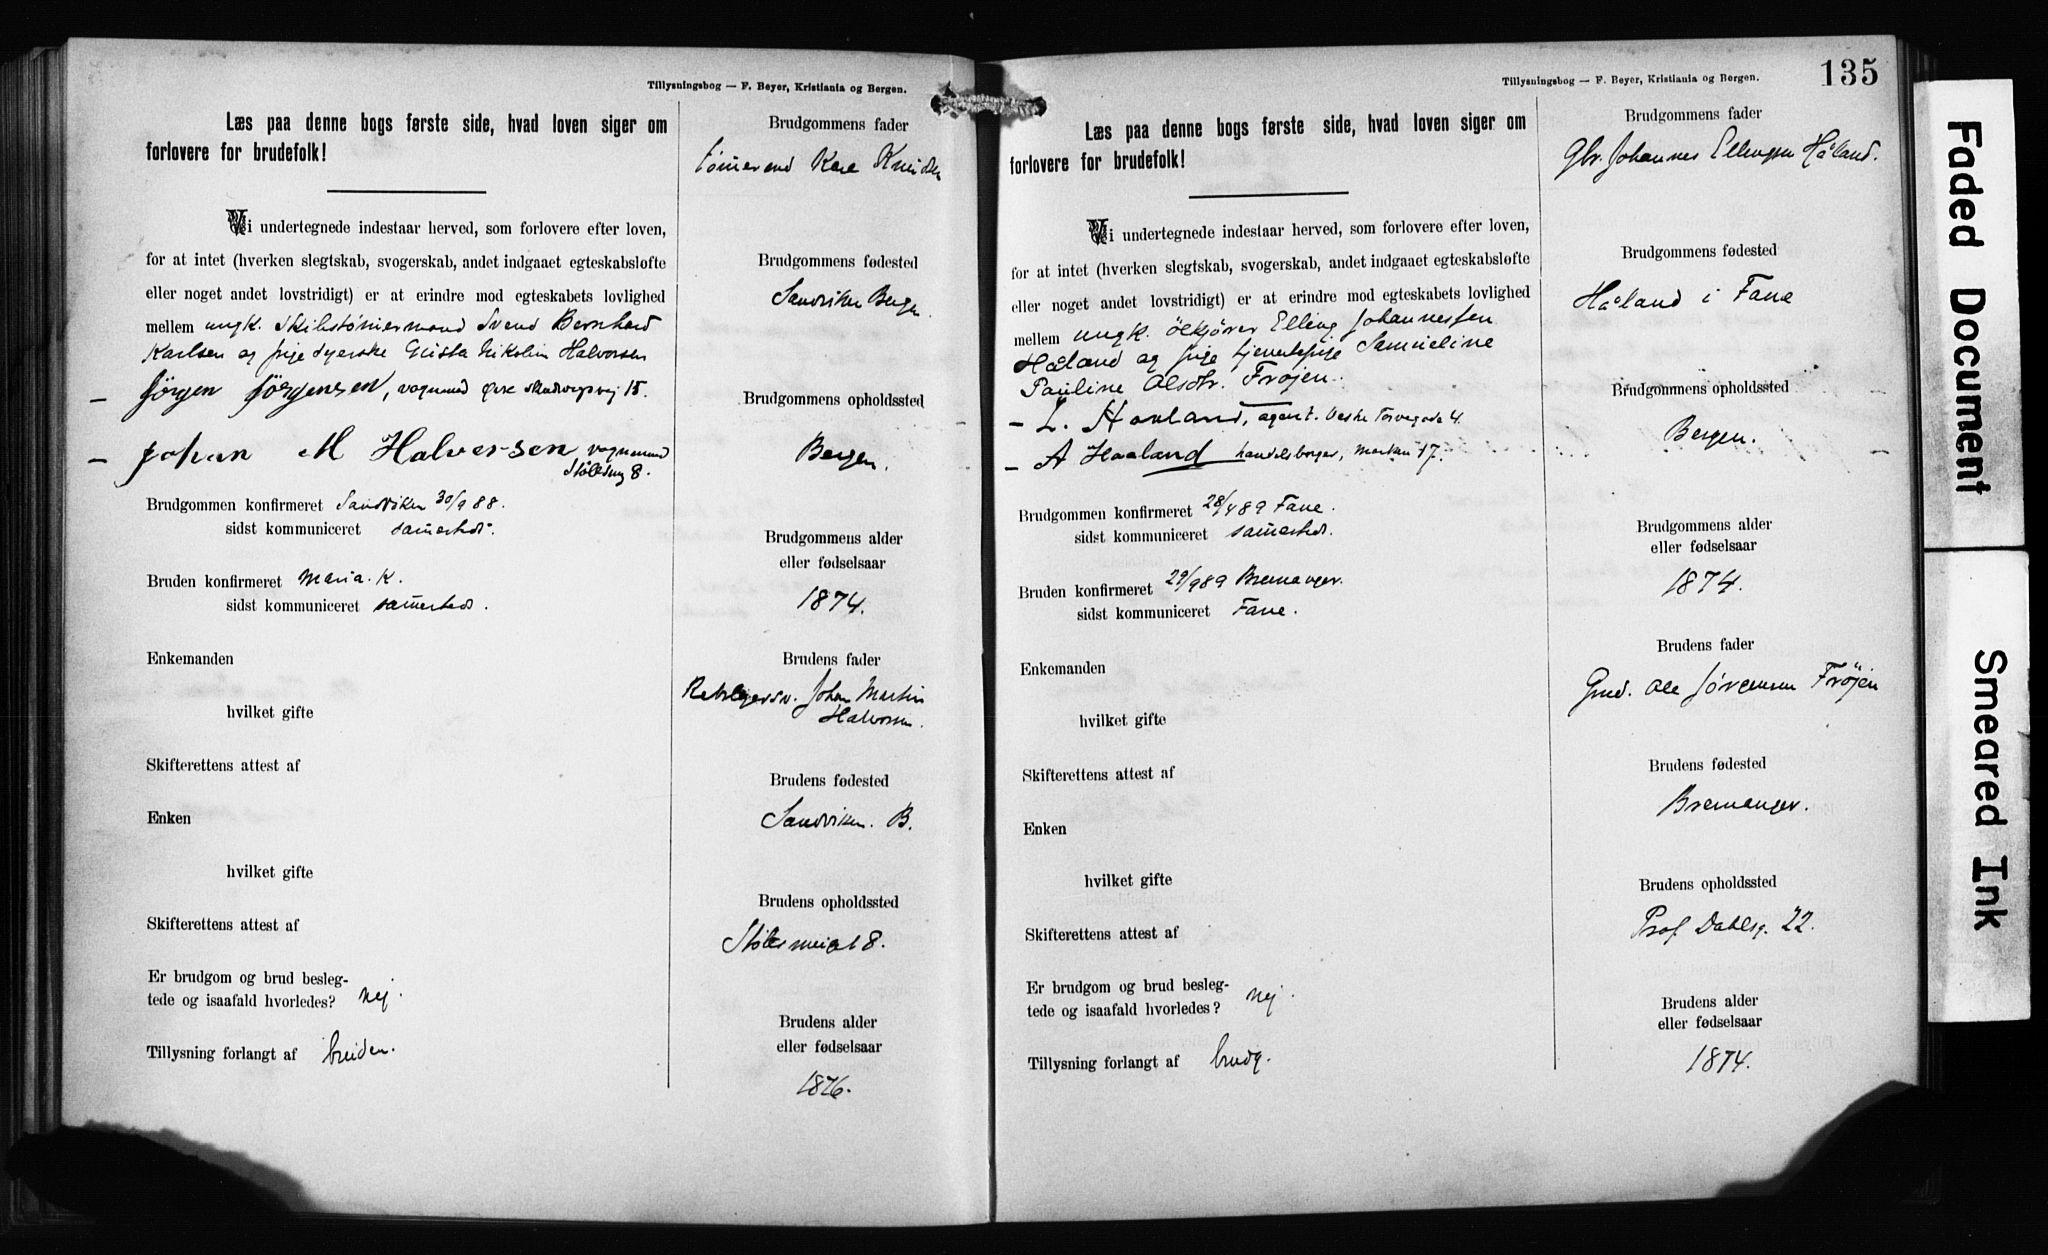 Tillysningsbog — F. Beyer, Kristiania og Bergen.
Læs paa denne bogs første side, hvad loven siger om
forlovere for brudefolk!
Vi undertegnede indestaar herved, som forlovere efter loven,
for at intet (hverken slegtskab, svogerskab, andet indgaaet egteskabsløfte
eller noget andet lovstridigt) er at erindre mod egteskabets lovlighed
mellem ungk. Skibstømmermand Svend Bernhard
Karlsen og pige Syerske Gusta Nikolin Halvorsen
— Jørgen Jørgensen, vognmd øvre 15.
— Johan M Halversen vognmand
8.
Brudgommen konfirmeret Sandviken 30/9 88.
sidst kommuniceret sammesteds.
Bruden konfirmeret Maria. K.
sidst kommuniceret sammesteds.
Enkemanden
hvilket gifte
Skifterettens attest af
Enken
hvilket gifte
Skifterettens attest af
Er brudgom og brud besleg-
tede og isaafald hvorledes? nej.
Tillysning forlangt af bruden.
Brudgommens fader
tømmermd Karl Knudsen
Brudgommens fødested
Sandviken Bergen.
Brudgommens opholdssted
Bergen.
Brudgommens alder
eller fødselsaar
1874.
Brudens fader
Johan Martin
Halvorsen.
Brudens fødested
Sandviken. B.
Brudens opholdssted
18.
Brudens alder
eller fødselsaar
1876.
Tillysningsbog — F. Beyer, Kristiania og Bergen.
135
Læs paa denne bogs første side, hvad loven siger om
forlovere for brudefolk!
Vi undertegnede indestaar herved, som forlovere efter loven,
for at intet (hverken slegtskab, svogerskab, andet indgaaet egteskabsløfte
eller noget andet lovstridigt) er at erindre mod egteskabets lovlighed
mellem ungk. ölkjører Elling Johannessen
Håland og pige tjenestepige Samueline
Pauline Olsdtr. Frøjen.
— L. Hovland, agent. Torvegade 4
— A Haaland handelsborger, Marken 17.
Brudgommen konfirmeret 28/4 89 Fane.
sidst kommuniceret sammesteds.
Bruden konfirmeret 29/9 89 Bremanger.
sidst kommuniceret Fane.
Enkemanden
hvilket gifte
Skifterettens attest af
Enken
hvilket gifte
Skifterettens attest af
Er brudgom og brud besleg-
tede og isaafald hvorledes? nej.
Tillysning forlangt af brudg.
Brudgommens fader
Gbr. Johannes Ellingsen Håland.
Brudgommens fødested
Håland i Fane
Brudgommens opholdssted
Bergen.
Brudgommens alder
eller fødselsaar
1874.
Brudens fader
Gmd. Ole Jørgensen Fröjen
Brudens fødested
Bremanger.
Brudens opholdssted
Prof. Dahlsg. 22.
Brudens alder
eller fødselsaar
1874.
Faded Document
Smeared Ink